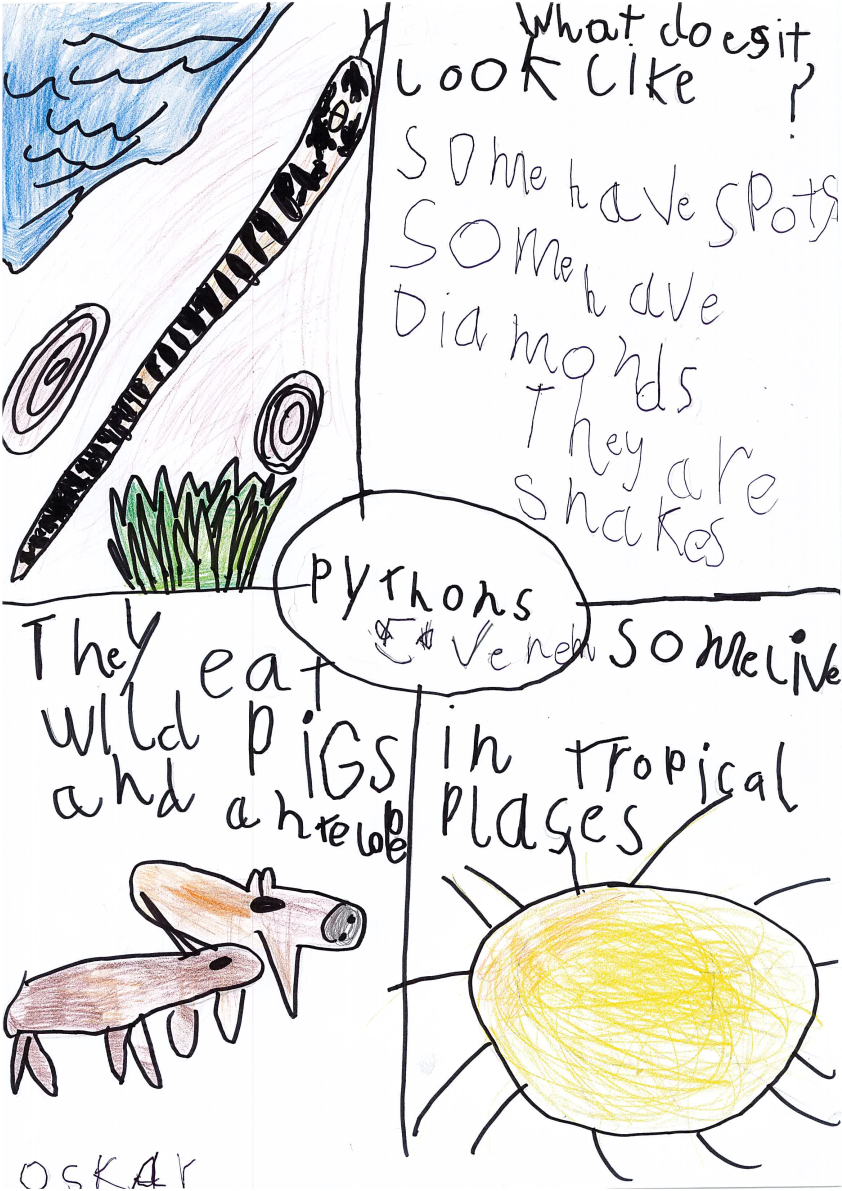 What does it
Look Like
?
Some have spots
Some have
Diamonds
They are
snakes
pythons
They eat
wild piGs
and antelope
some live
in tropical
plases
oskar